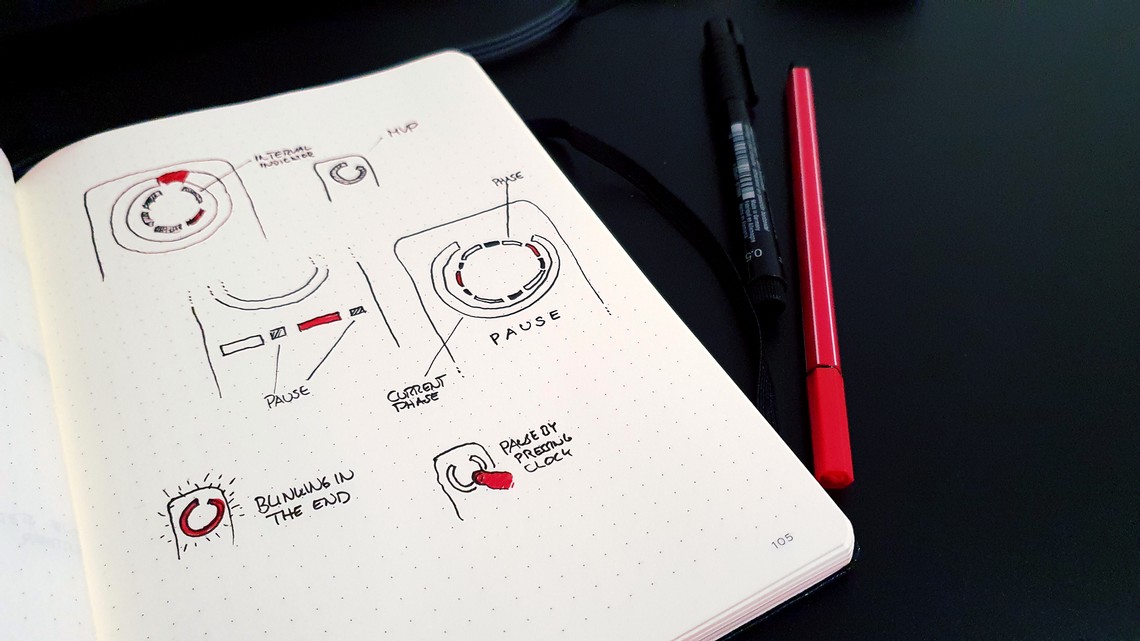 INTERVAL
INDICATOR
MVP
PHASE
PAUSE
PAUSE
CURRENT
PHASE
BLINKING IN
THE END
PAUSE BY
PRESSING
CLOCK
105
0.5